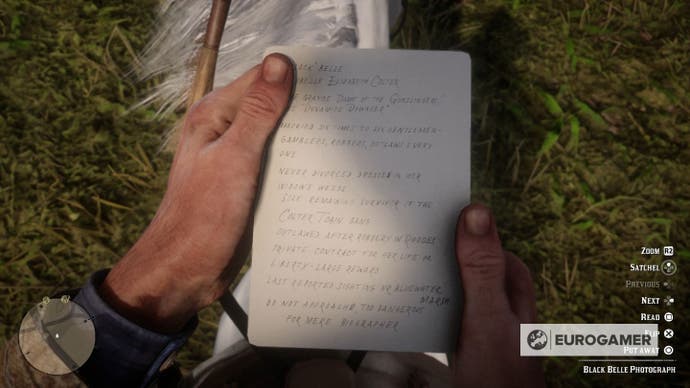 BELLE
ELIZABETH COLTER
GRANDE DAME OF THE GUNSLINGERS,
"DYNAMITE DOWAGER"
MARRIED SIX TIMES TO SIX GENTLEMEN-
GAMBLERS, ROBBERS, OUTLAWS EVERY
ONE
NEVER DIVORCED, DRESSED IN HER
WIDOW'S WEEDS
SOLE REMAINING SURVIVOR OF THE
COLTER TOWN GANG
OUTLAWED AFTER ROBBERY IN RHODES
PRIVATE CONTRACT FOR HER LIFE
LIBERTY - LARGE REWARD
LAST REPORTED SIGHTING NR BLUEWATER
MARSH
DO NOT APPROACH, TOO DANGEROUS
FOR MERE BIOGRAPHER
ZOOM R2
SATCHEL
PREVIOUS
NEXT
READ
FLIP
PUT AWAY
EUROGAMER
BLACK BELLE PHOTOGRAPH